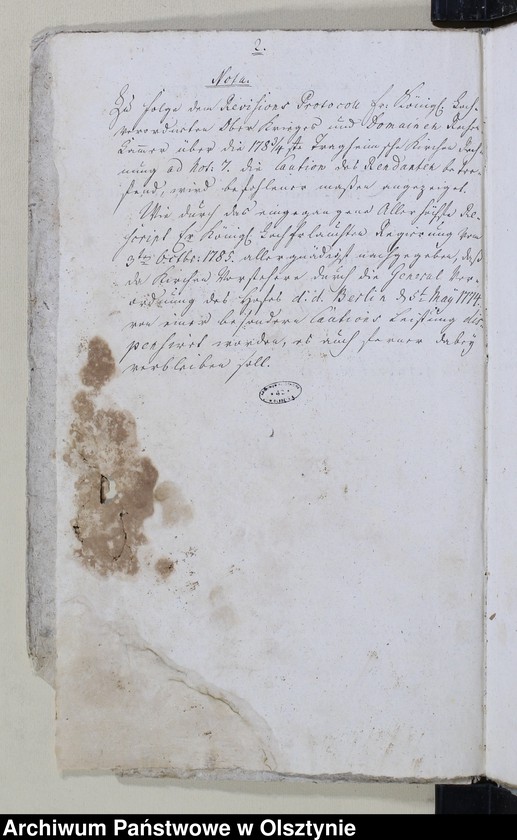 2.
Nota.
Zu folge dem Revisions Protocoll Er. Königl. Hoch-
verordneten Ober Krieges und Domainen Rechen
Kammer über die 1783/4 te Tragheimsche Kirchen Rech-
nung ad Not: 7. die Caution des Rendanten betre-
fend, wird befohlener maßen angezeiget.
Wie durch das eingegangene Allerhöchste Re-
script Er Königl Hocherlauchten Regierung vom
3ten Octbr: 1785. allergnädigst nachgegeben, daß
da Kirchen Vorstehere durch die General Ver-
ordnung des Hofes d: d. Berlin d 5t May 1774
von einer besondern Cautions Leistung dis
pensiret worden, es auch ferner dabey
verbleiben soll.
Archiwum Państwowe w Olsztynie